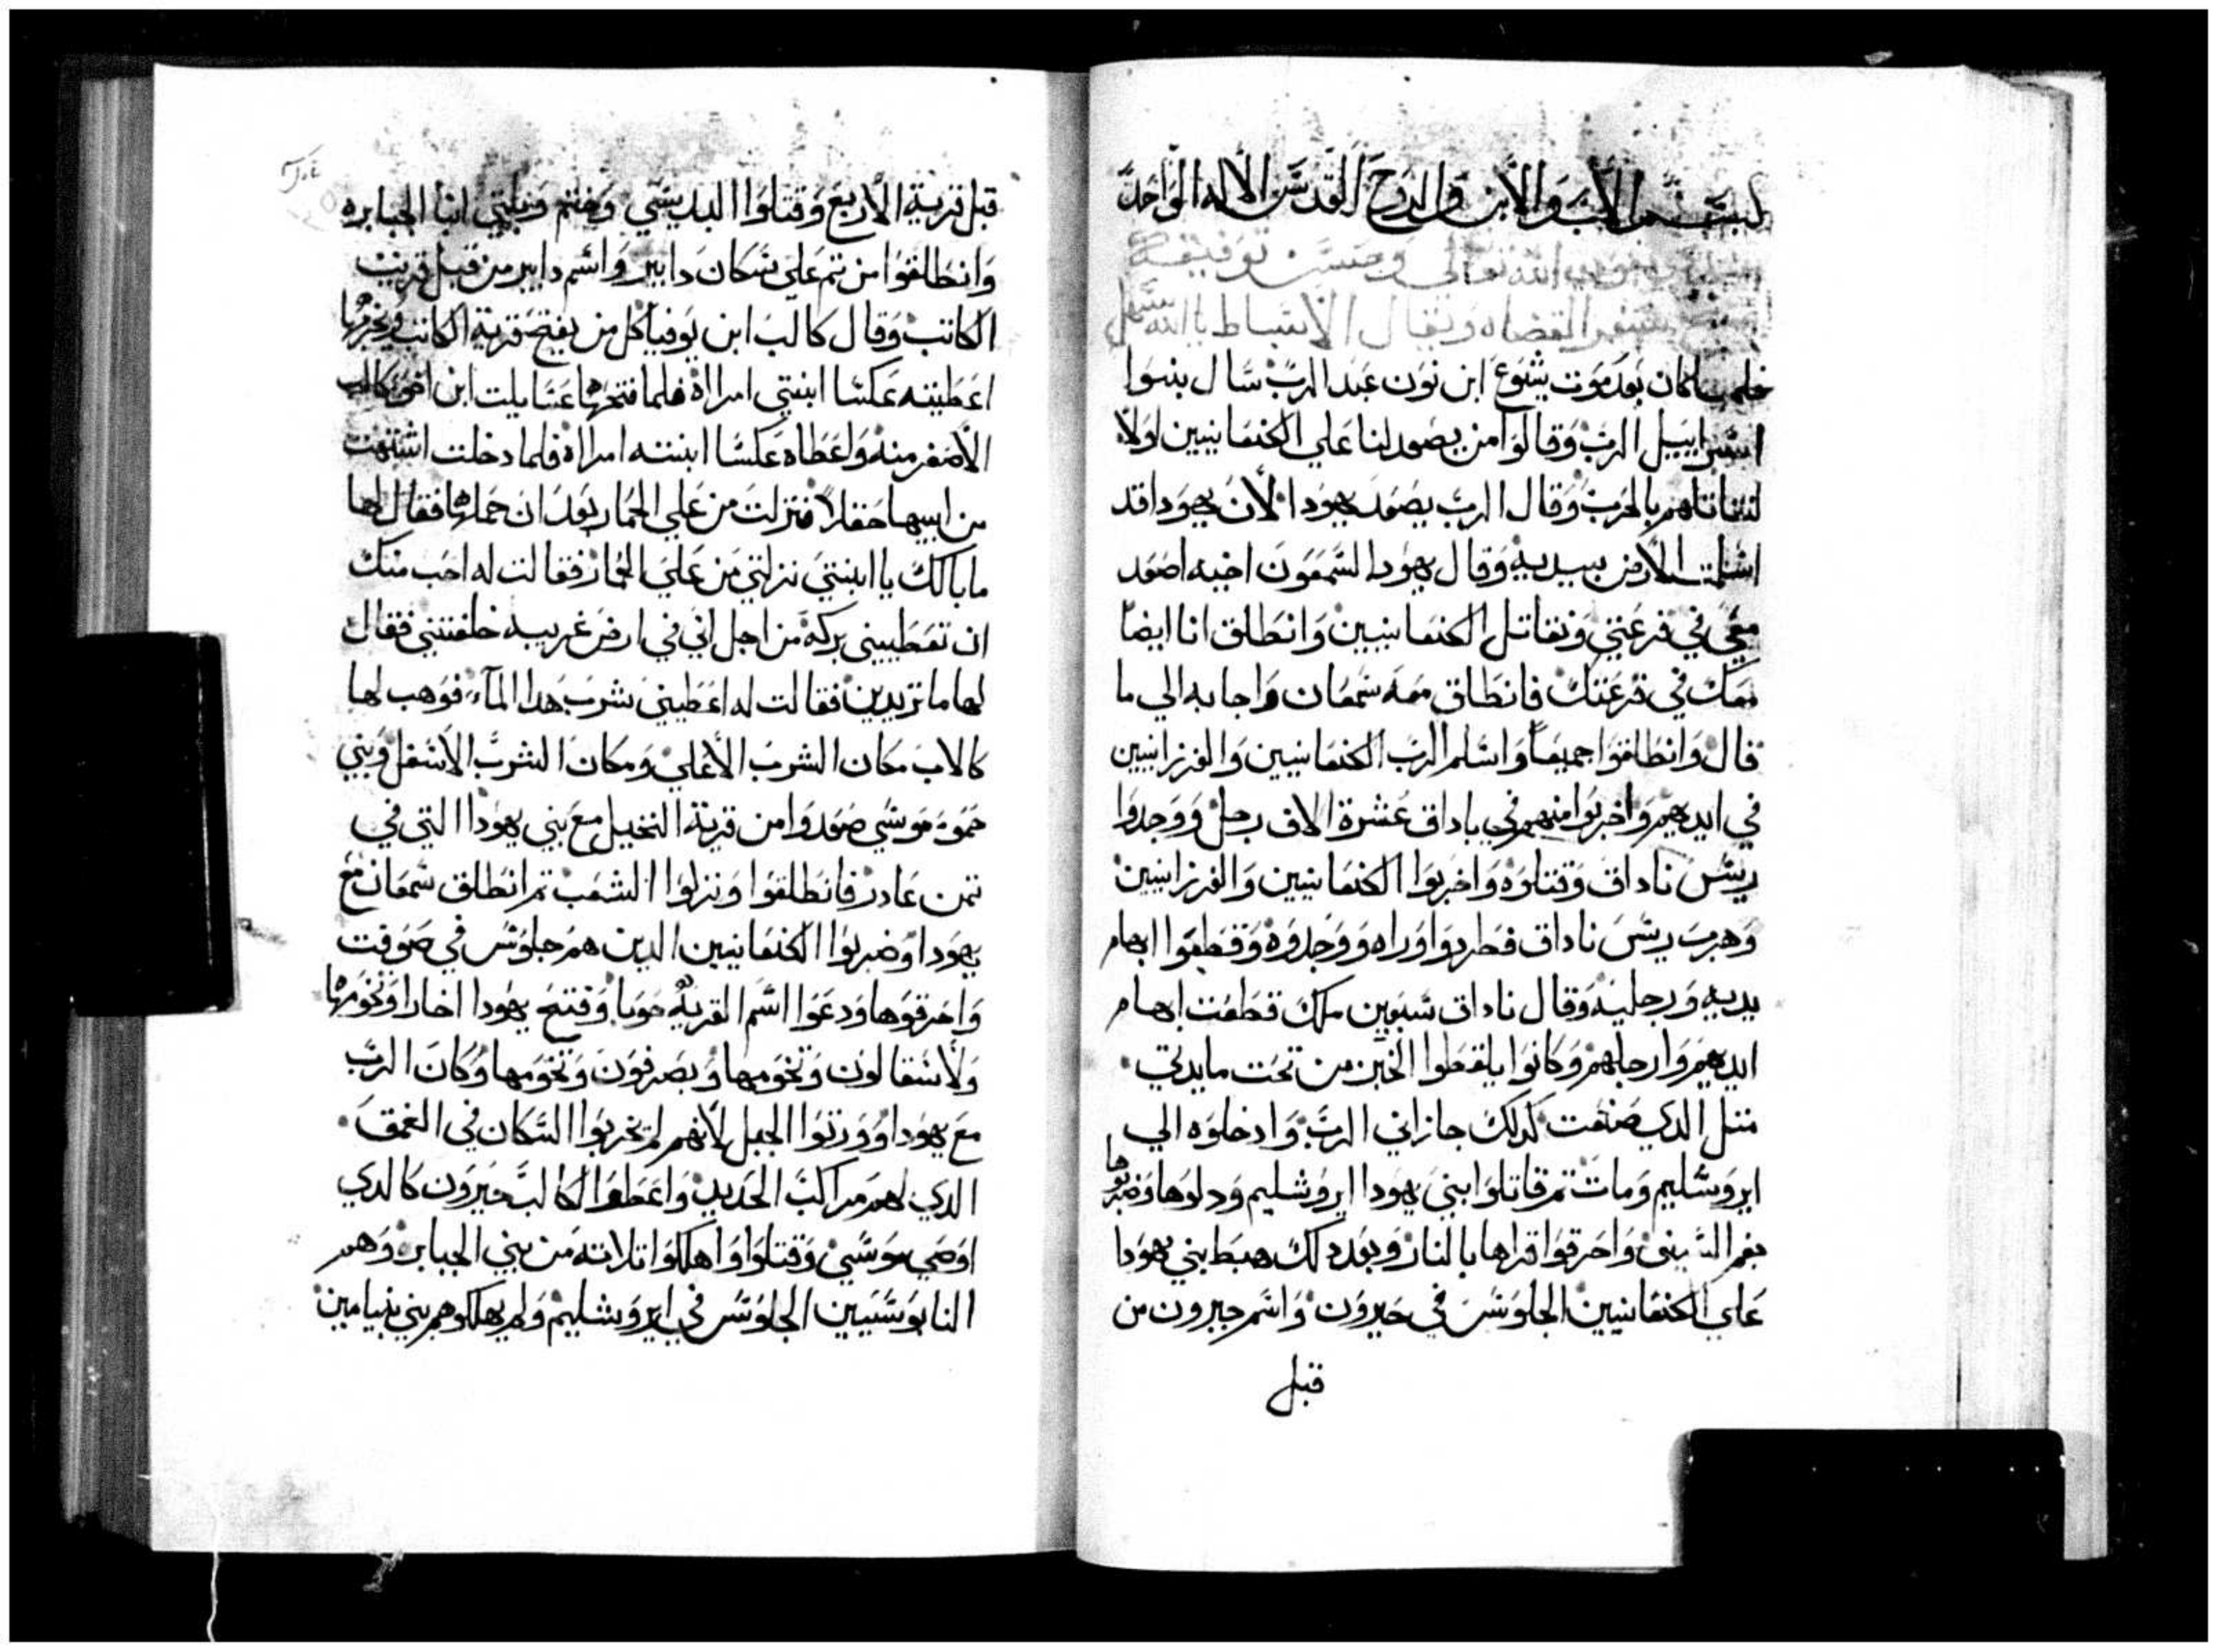 بسم الاب والابن والروح القدس الاله الواحد
بعون الله تعالى وحسن توفيقه
سفر القضاه ويقال الاسباط يا الله سهل
فلما كان بعد موت يشوع ابن نون عبد الرب سال بنوا
اسراييل الرب وقالوا من يصعد لنا علي الكنعانيين اولا
لنقاتلهم بالحرب وقال الرب يصعد يهودا لان يهودا قد
اسلمت الارض بيديه وقال يهودا لشمعون اخيه اصعد
معي في قرعتي ونقاتل الكنعانيين وانطلق انا ايضا
معك في قرعتك فانطلق معه شمعان واجابه الي ما
قال وانطلقوا جميعا واسلم الرب الكنعانيين والفرزانيين
في ايديهم واخربوا منهم في باداق عشرة الاف رجل ووجدوا
ريس ناداق وقتلوه واخربوا الكنعانيين والفرزانيين
وهرب ريس ناداق فطردوا وراه ووجدوه وقطعوا ابهام
يديه ورجليه وقال ناداق سبعين ملك قطعت ابهام
ايديهم وارجلهم وكانوا يلقطوا الخبز من تحت مايدتي
متل الدي صنعت كدلك جازاني الرب وادخلوه الي
ايروشليم ومات تم قاتلوا بني يهودا ايروشليم ودلوها وضربوها
بفم السيف واحرقوا قراها بالنار وبعد دلك هبط بني يهودا
علي الكنعانيين الجلوس في حبرون واسم حبرون من
قبل
قبل قرية الاربع وقتلوا البديسي وختم وتلتي ابنا الجبابره
وانطلقوا من تم علي سكان دابير واسم دابير من قبل قريت
الكاتب وقال كالب ابن يوفيا كل من يفتح قرية الكاتب ويخربها
اعطيته عكسا ابنتي امراة فلما فتحها عتنايلت ابن اخو كالب
الاصغر منه واعطاه عكسا ابنته امراة فلما دخلت اشتهت
من ابيها حقلا فنزلت من علي الحمار بعد ان حملها فقال لها
ما بالك يا ابنتي نزلتي من علي الحمار فقالت له احب منك
ان تعطيني بركة من اجل اني في ارض غريبه خلفتني فقال
لها ما تريدين فقالت له اعطيني شرب هدا المآء فوهب لها
كالاب مكان الشرب الاعلي ومكان الشرب الاسفل وبني
حموه موسي صعدوا من قرية النخيل مع بني يهودا التي في
تمن عادر فانطلقوا ونزلوا الشعب تم انطلق شمعان مع
يهودا وضربوا الكنعانيين الدين هم جلوس في صوفت
واحرقوها ودعوا اسم القريه حوبا وفتح يهودا اخارا وتخومها
ولاشقالون وتخومها وبصرفون وتخومها وكان الرب
مع يهودا وورتوا الجبل لانهم لم يخربوا السكان في الغمق
الدي لهم مراكب الحديد واعطوا لكالب حبرون كالدي
اوصي موسي وقتلوا واهلكوا تلاته من بني الجبابره وهم
النابوسيين الجلوس في ايروشليم ولم يهلكوهم بني بنيامين